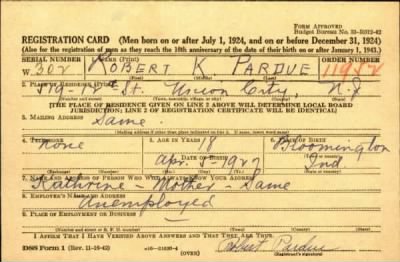 FORM APPROVED
Budget Bureau No. 33-R012-42
REGISTRATION CARD (Men born on or after July 1, 1924, and on or before December 31, 1924)
(Also for the registration of men as they reach the 18th anniversary of the date of their birth on or after January 1, 1943.)
SERIAL NUMBER 1. NAME (Print) ORDER NUMBER
W 302 ROBERT K PARDUE
2. PLACE OF RESIDENCE (Print)
St. Union City, N.J
[THE PLACE OF RESIDENCE GIVEN ON LINE 2 ABOVE WILL DETERMINE LOCAL BOARD
JURISDICTION; LINE 2 OF REGISTRATION CERTIFICATE WILL BE IDENTICAL]
3. MAILING ADDRESS
Same.
[Mailing address if other than place indicated on line 2. If same, insert word same]
4. TELEPHONE 5. AGE IN YEARS 6. PLACE OF BIRTH
None 18 Bloomington
DATE OF BIRTH
Apr. 5-1927 Ind
7. NAME AND ADDRESS OF PERSON WHO WILL ALWAYS KNOW YOUR ADDRESS
Kathrine - Mother - Same
8. EMPLOYER'S NAME AND ADDRESS
Unemployed
9. PLACE OF EMPLOYMENT OR BUSINESS
I AFFIRM THAT I HAVE VERIFIED ABOVE ANSWERS AND THAT THEY ARE TRUE.
DSS Form 1 (Rev. 11-16-42) (OVER) Robert Pardue
(Registrant's signature)